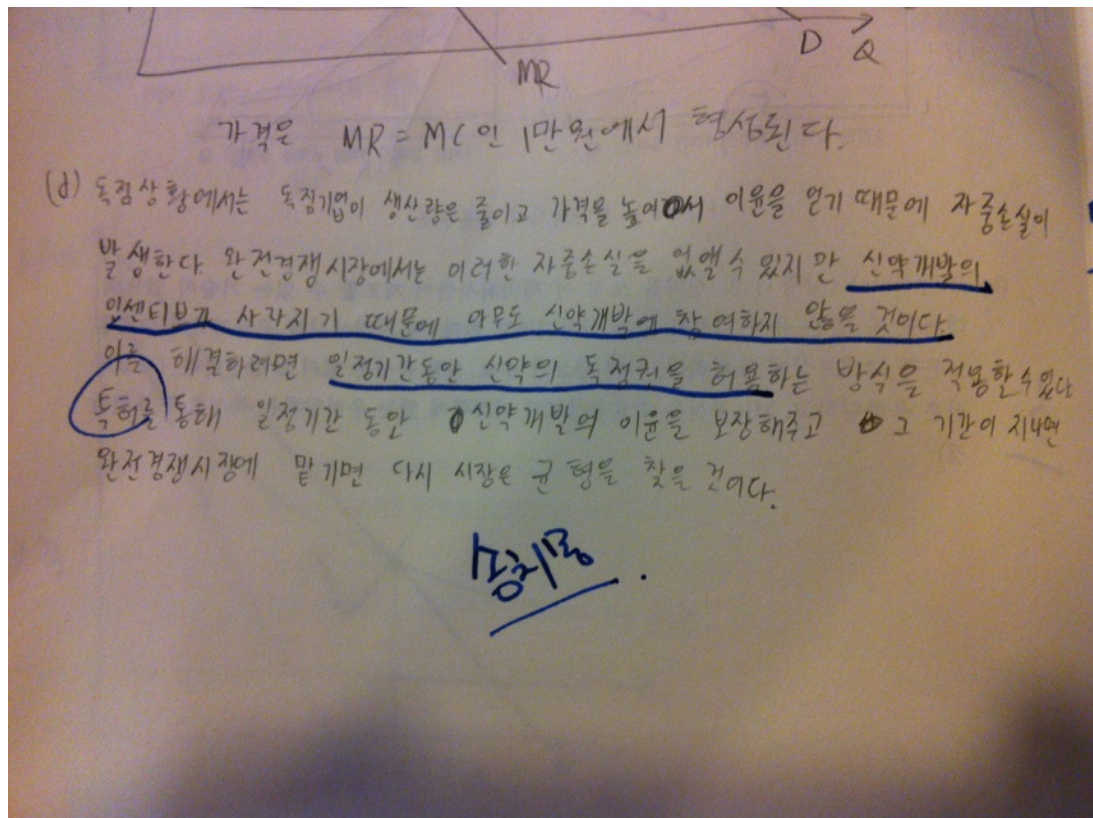 D Q
MR
가격은 MR = MC 인 1만원에서 형성된다.
(d) 독점상황에서는 독점기업이 생산량은 줄이고 가격을 높여서 이윤을 얻기 때문에 자중손실이
발생한다. 완전경쟁시장에서는 이러한 자중손실을 없앨 수 있지만 신약개발의
인센티브가 사라지기 때문에 아무도 신약개발에 참여하지 않을 것이다.
이를 해결하려면 일정기간동안 신약의 독점권을 허용하는 방식을 적용할 수 있다
특허를 통해 일정기간 동안 신약개발의 이윤을 보장해주고 그 기간이 지나면
완전경쟁시장에 맡기면 다시 시장은 균형을 찾을 것이다.